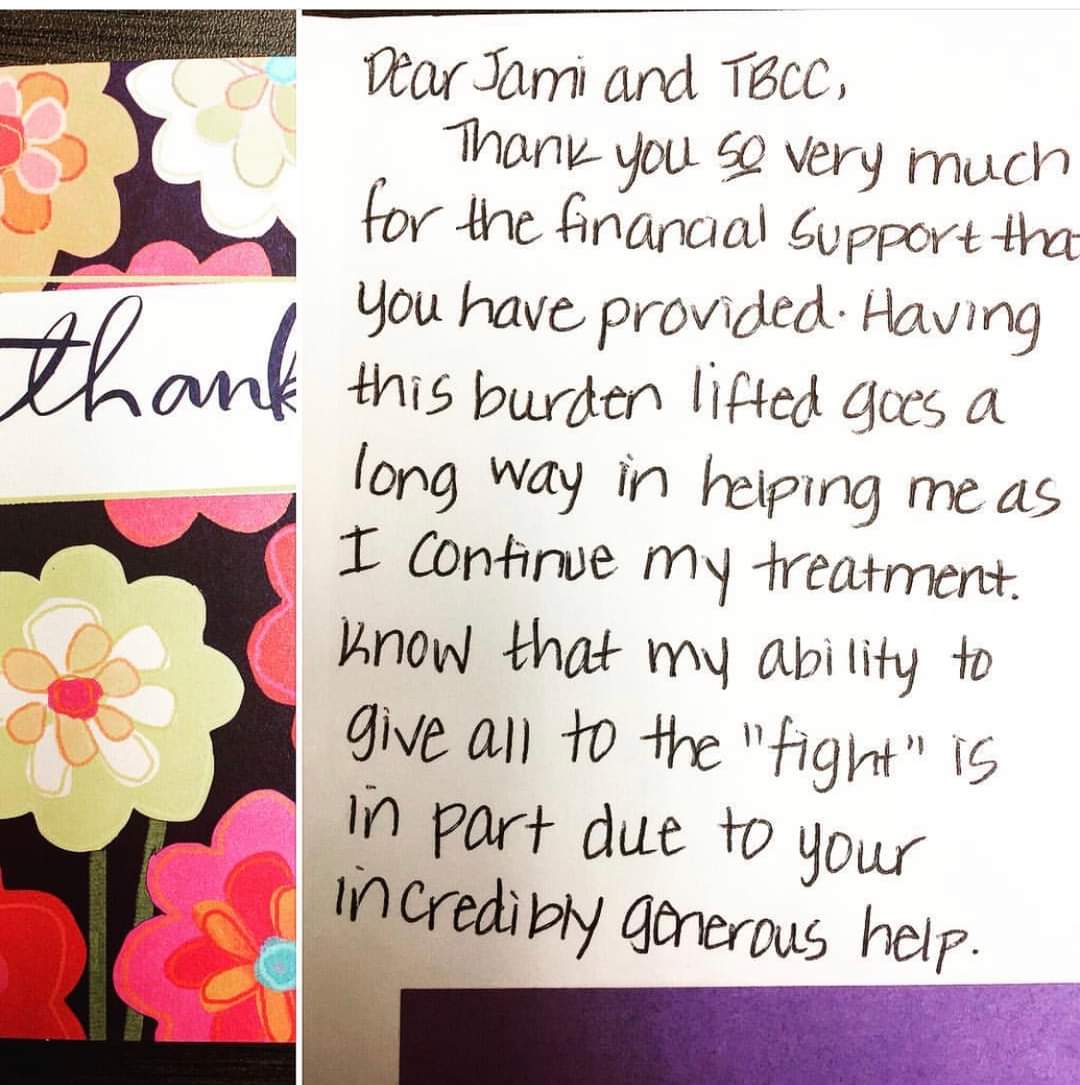 thank
Dear Jami and TBCC,
Thank you so very much
for the financial support tha
you have provided. Having
this burden lifted goes a
long way in helping me as
I continue my treatment.
Know that my ability to
give all to the "fight" is
in part due to your
incredibly generous help.